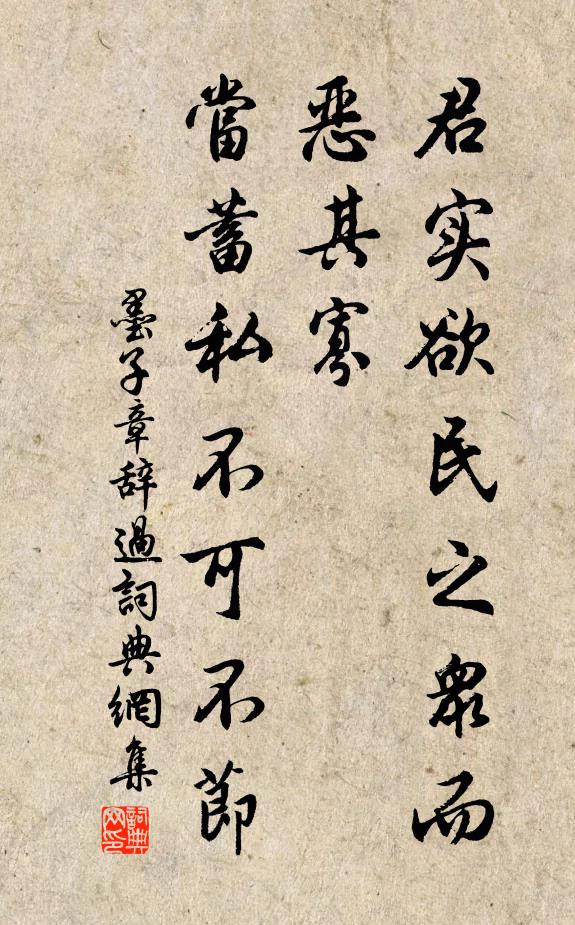 君实欲民之衆而
惡其寡
當蓄私不可不節
墨子章辞過詞典網集
詞典
网印